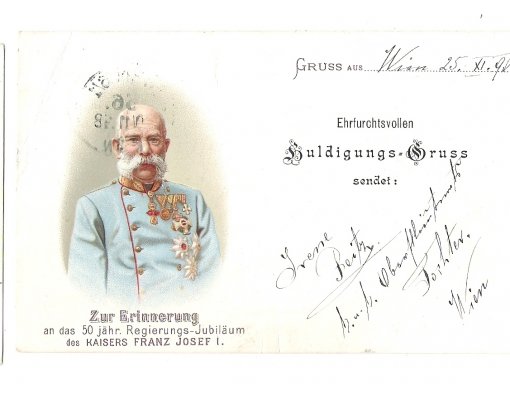 GRUSS AUS Wien 25. XI. 98
Ehrfurchtsvollen
Huldigungs-Gruss
sendet:
Irene
k. u. k. Oberstleutnants
Tochter.
Wien
Zur Erinnerung
an das 50 jähr. Regierungs-Jubiläum
des KAISERS FRANZ JOSEF I.